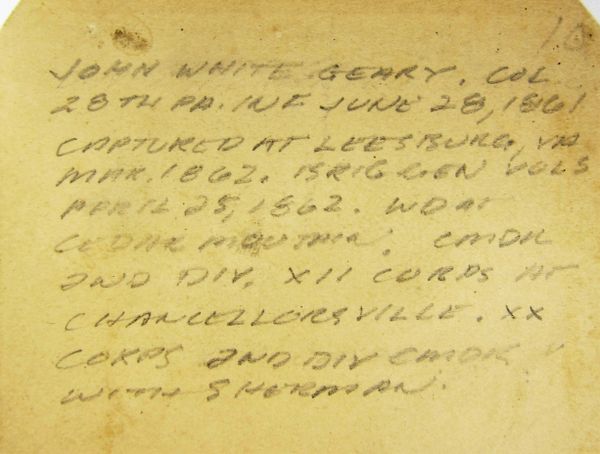 10
JOHN WHITE GEARY. COL
28TH PA. INF JUNE 28, 1861
CAPTURED AT LEESBURG, VA
MAR. 1862. BRIG GEN VOLS
APRIL 25, 1862. WD AT
CEDAR MOUNTAIN. CMDR
2ND DIV. XII CORPS AT
CHANCELLORSVILLE. XX
CORPS 2ND DIV CMDR
WITH SHERMAN.